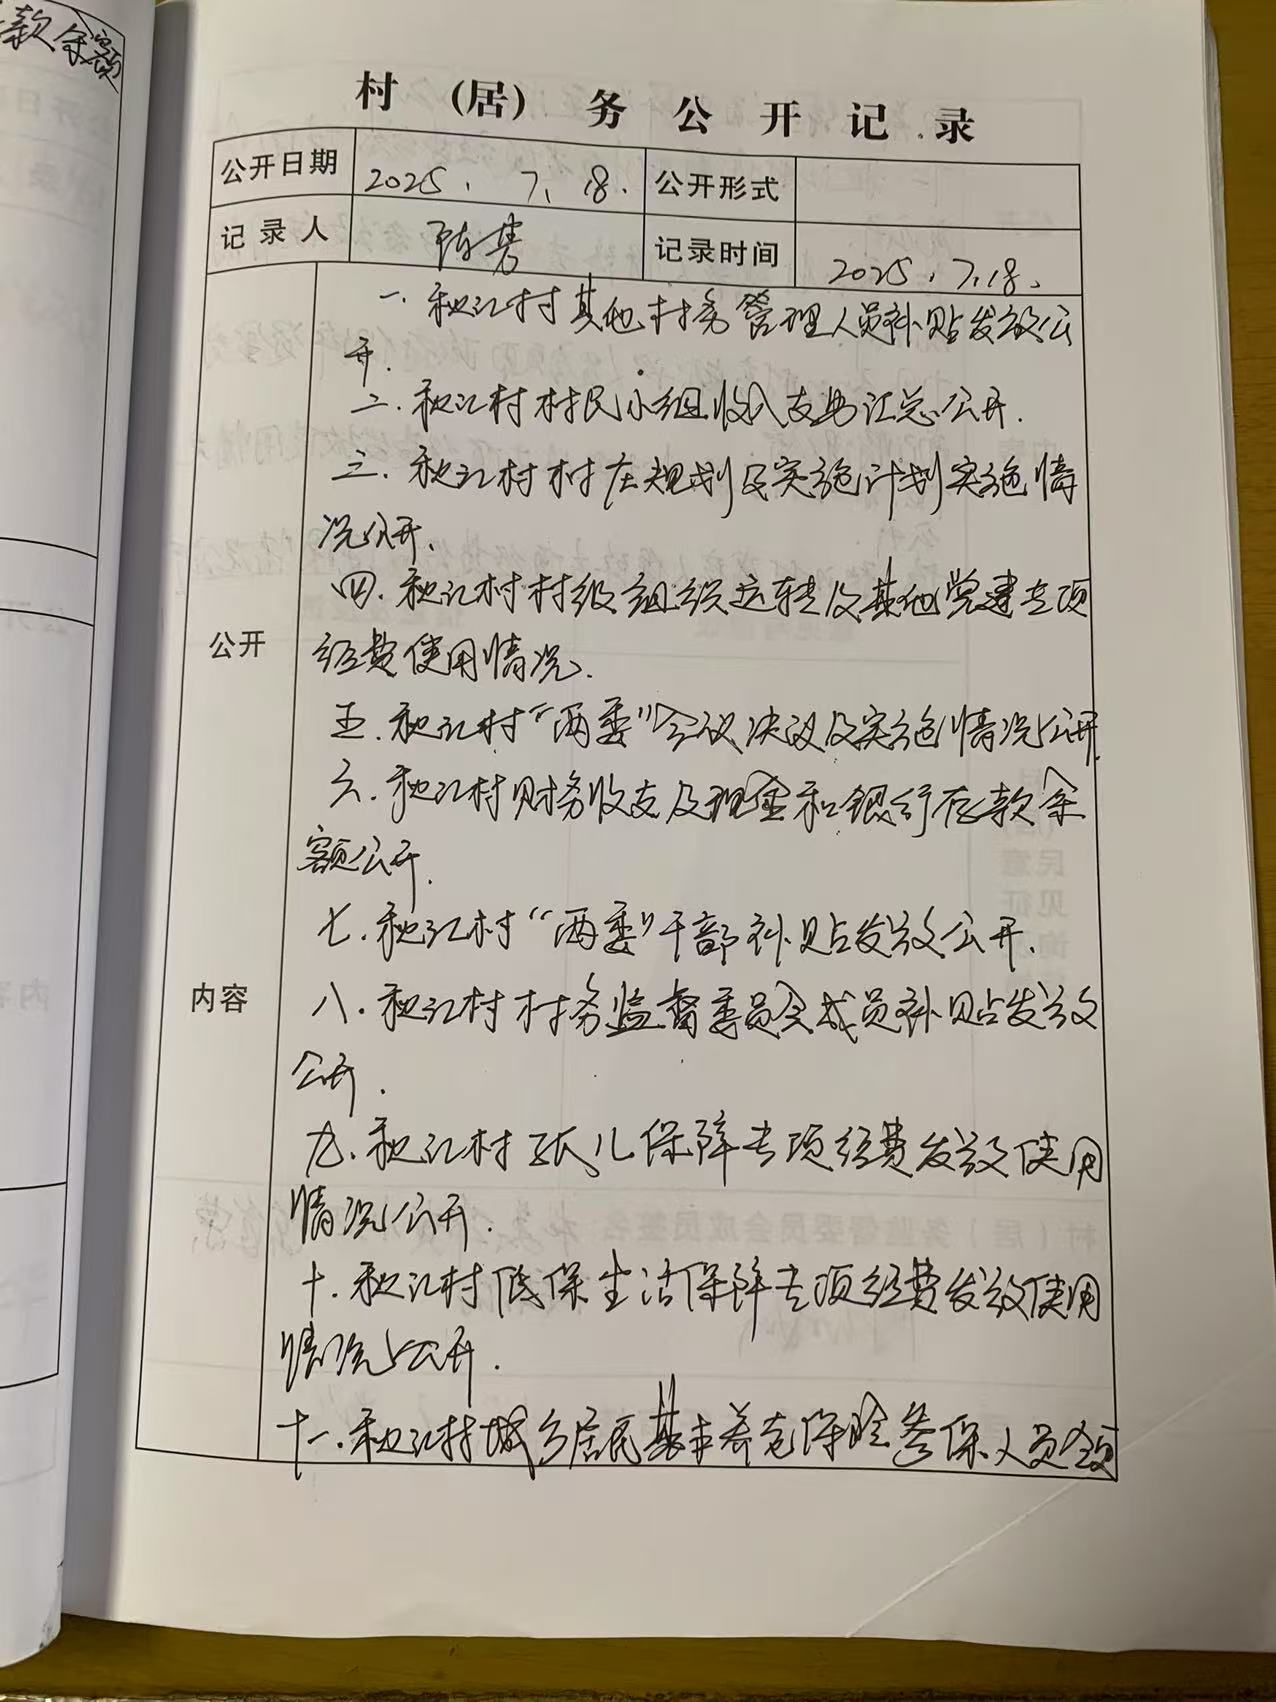 款余额
村（居）务公开记录
公开日期 2025.7.18. 公开形式
记录人 记录时间 2025.7.18.
一.秋江村其他村务管理人员补贴发放公
开.
二.秋江村村民小组收入支出汇总公开.
三.秋江村村庄规划及实施计划实施情
况公开.
四.秋江村村级组织运转及其他党建专项
公开 经费使用情况.
五.秋江村“两委”会议决议及实施情况公开.
六.秋江村财务收支及现金和银行存款余
额公开.
七.秋江村“两委”干部补贴发放公开.
内容 八.秋江村村务监督委员会成员补贴发放
公开.
九.秋江村孤儿保障专项经费发放使用
情况公开.
十.秋江村低保生活保障专项经费发放使用
情况公开.
十一.秋江村城乡居民基本养老保险参保人员领